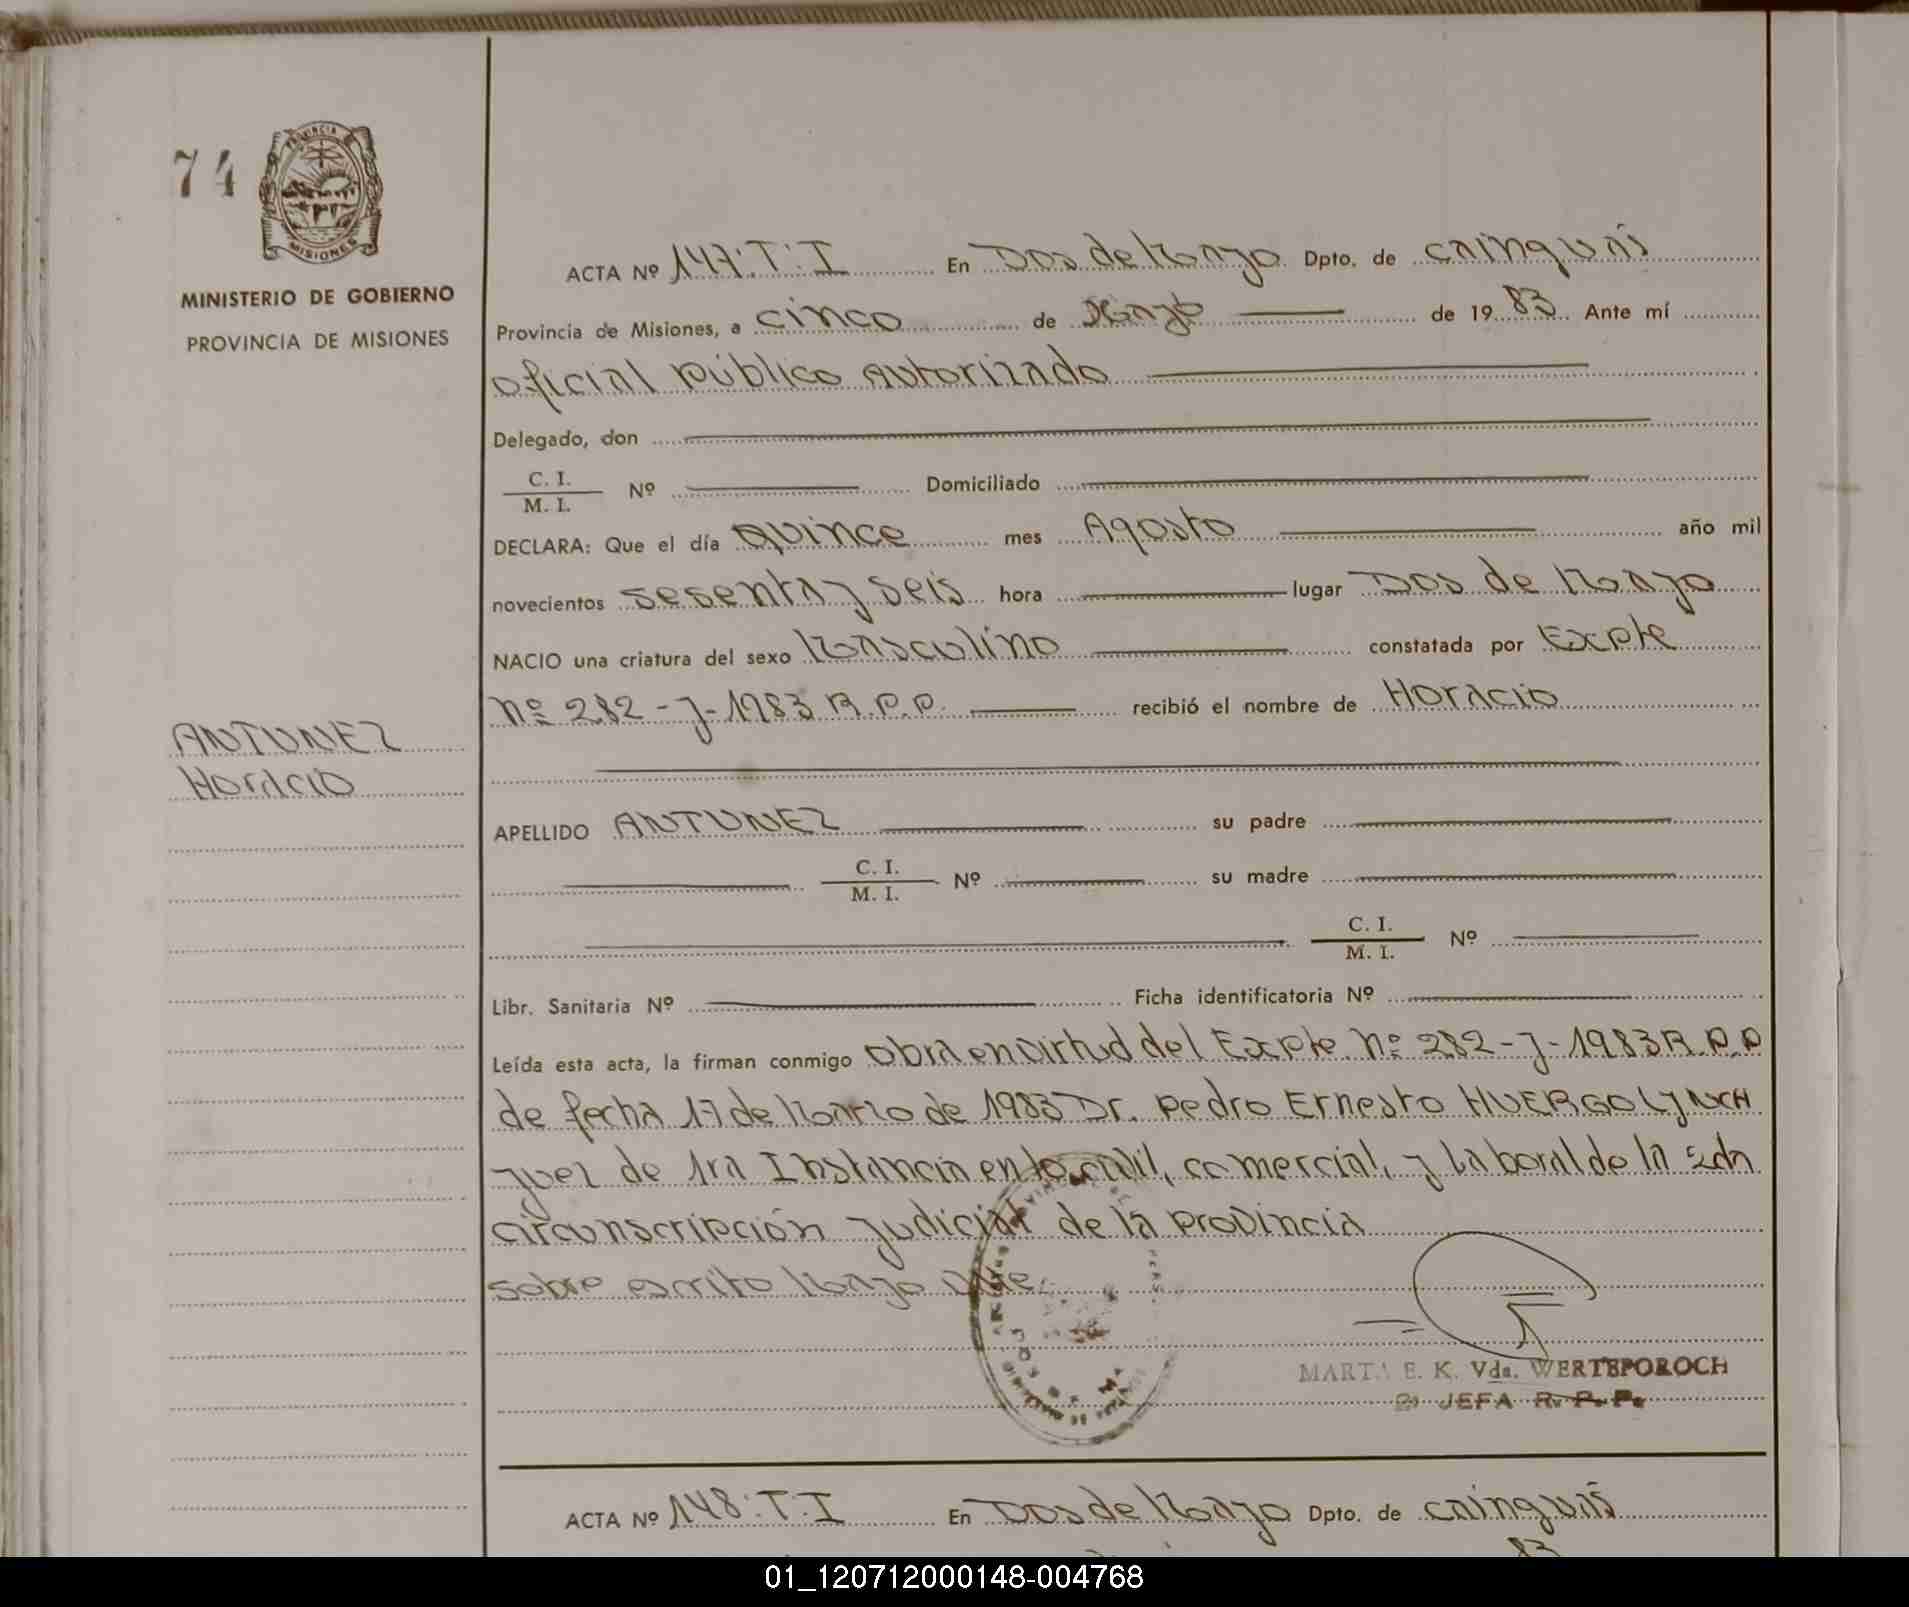 74
PROVINCIA
MISIONES
MINISTERIO DE GOBIERNO
PROVINCIA DE MISIONES
ANTUNEZ
Horacio
ACTA Nº 147:T:I En Dos de Mayo Dpto. de cainguás
Provincia de Misiones, a cinco de Mayo de 1983. Ante mí
oficial público autorizado
Delegado, don
C. I.
M. I. Nº Domiciliado
DECLARA: Que el día quince mes Agosto año mil
novecientos sesenta y seis hora lugar Dos de Mayo
NACIO una criatura del sexo Masculino constatada por Expte
Nº 282-J-1983 R.P.P. recibió el nombre de Horacio
APELLIDO ANTUNEZ su padre
C. I.
M. I. Nº su madre
C. I.
M. I. Nº
Libr. Sanitaria Nº Ficha identificatoria Nº
Leída esta acta, la firman conmigo obra en virtud del Expte. Nº 282-J-1983 R.P.P
de fecha 17 de Marzo de 1983 Dr. Pedro Ernesto HUERGO LYNCH
Juez de 1ra Instancia en lo civil, comercial, y Laboral de la 2da
circunscripción Judicial de la provincia
sobre escrito Mayo Vale.
MARTA E. K. Vda. WERTEPOROCH
JEFA R. P. P.
ACTA Nº 148:T:I En Dos de Mayo Dpto. de cainguás
83
01_120712000148-004768